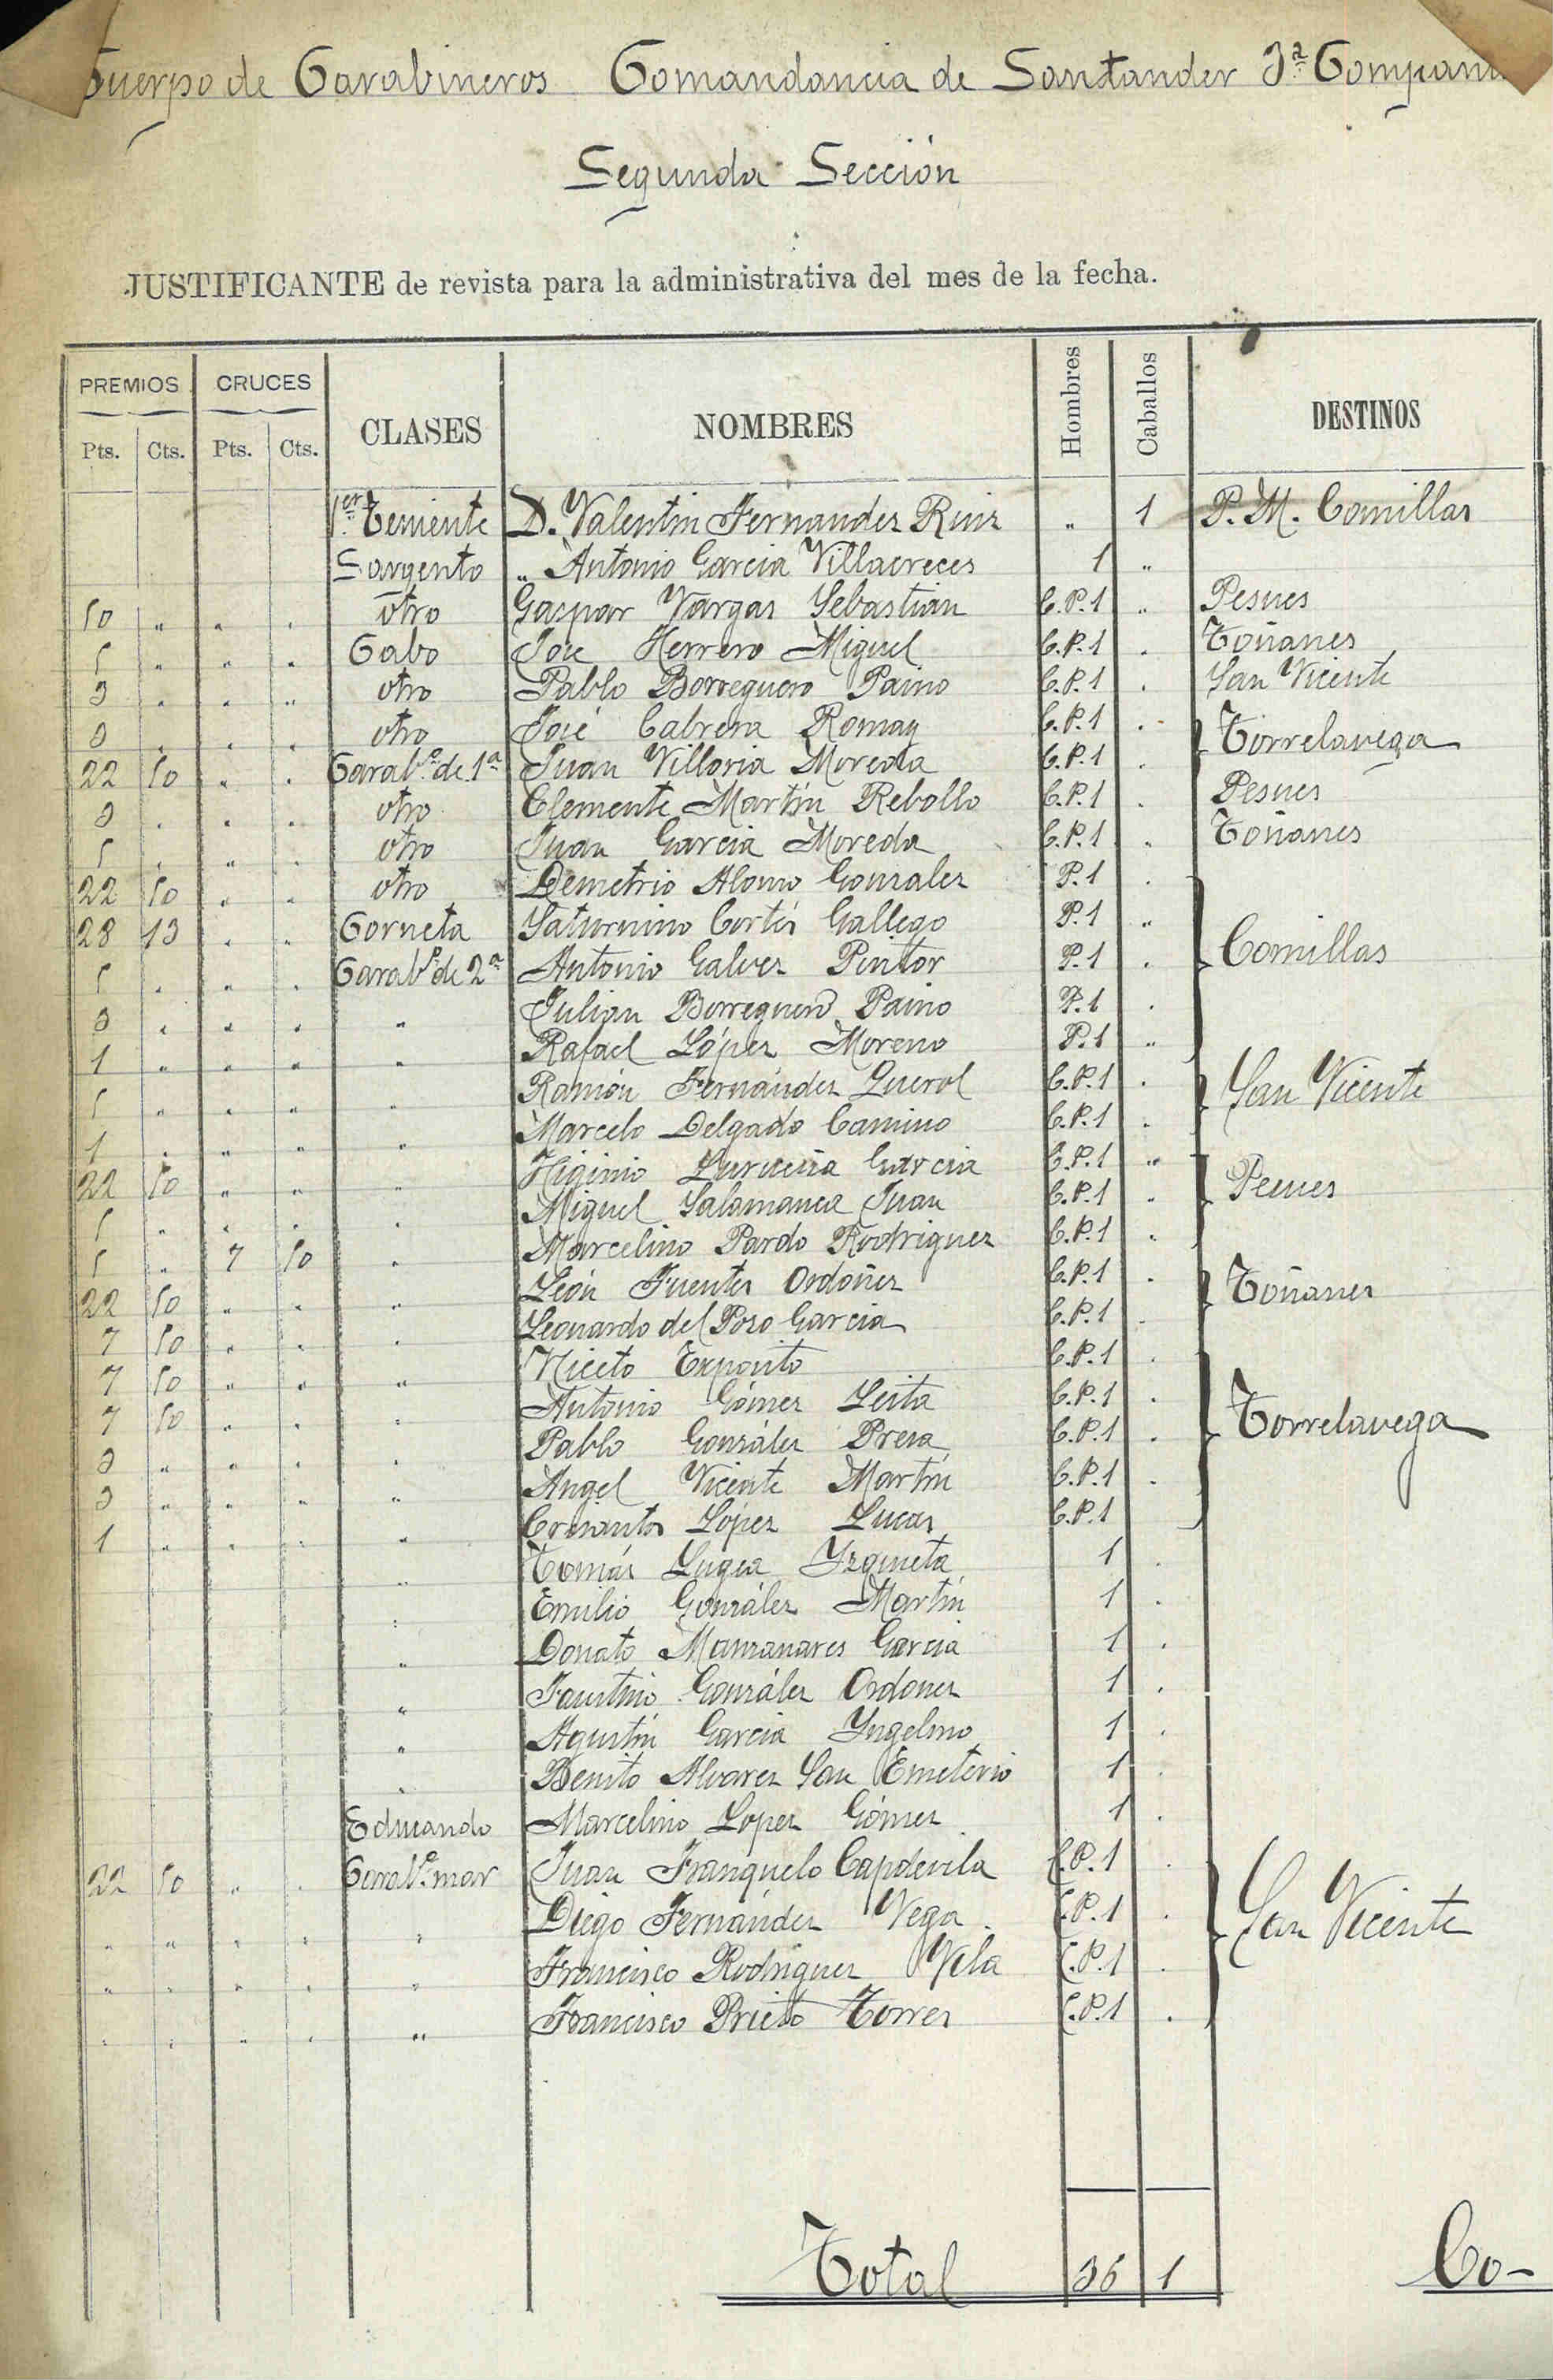 Cuerpo de Carabineros Comandancia de Santander 3ª Compañia
Segunda Sección
JUSTIFICANTE de revista para la administrativa del mes de la fecha.
PREMIOS CRUCES CLASES NOMBRES Hombres Caballos DESTINOS
Pts. Cts. Pts. Cts.
1er Teniente D. Valentin Fernandez Ruiz " 1 P. M. Comillas
Sargento " Antonio Garcia Villacreces 1 "
50 " " " otro Gaspar Vargas Sebastián C.P. 1 " Pesues
5 " " " Cabo José Herrero Miguel C.P. 1 " Toñanes
3 " " " otro Pablo Borreguero Paino C.P. 1 " San Vicente
3 " " " otro José Cabrera Roman C.P. 1 " Torrelavega
22 50 " " Carabº de 1ª Juan Villoria Moreda C.P. 1 "
3 " " " otro Clemente Martín Rebollo C.P. 1 " Pesues
5 " " " otro Juan Garcia Moreda C.P. 1 " Toñanes
22 50 " " otro Demetrio Alonso Gonzalez P. 1 "
28 13 " " Corneta Saturnino Cortés Gallego P. 1 " Comillas
5 " " " Carabº de 2ª Antonio Galvez Pintor P. 1 "
3 " " " " Julian Borreguero Paino P. 1 "
1 " " " " Rafael López Moreno P. 1 "
5 " " " " Ramón Fernández Querol C.P. 1 " San Vicente
1 " " " " Marcelo Delgado Camino C.P. 1 "
22 50 " " " Higinio Garcia C.P. 1 " Pesues
5 " " " " Miguel Salamanca Juan C.P. 1 "
5 " 7 50 " Marcelino Pardo Rodriguez C.P. 1 "
22 50 " " " León Fuentes Ordoñez C.P. 1 " Toñanes
7 50 " " " Leonardo del Pozo Garcia C.P. 1 "
7 50 " " " Niceto Exposito C.P. 1 "
7 50 " " " Antonio Gómez Leita C.P. 1 " Torrelavega
3 " " " " Pablo González Presa C.P. 1 "
3 " " " " Angel Vicente Martín C.P. 1 "
1 " " " " Crisantos López Lucas C.P. 1
" Tomás Yzquieta 1 "
" Emilio González Martín 1 "
" Donato Manzanares Garcia 1 "
" Faustino González Ordonez 1 "
" Agustín Garcia Yngelmo 1 "
" Benito Alvarez San Emeterio 1 "
Educando Marcelino Lopez Gómez 1 "
22 50 " " Carabº mar Juan Franquelo Capdevila C.P. 1 "
" " " " " Diego Fernández Vega C.P. 1 " San Vicente
" " " " " Francisco Rodriguez Vela C.P. 1 "
" " " " " Francisco Prieto Torres C.P. 1 "
Total 36 1 Co-